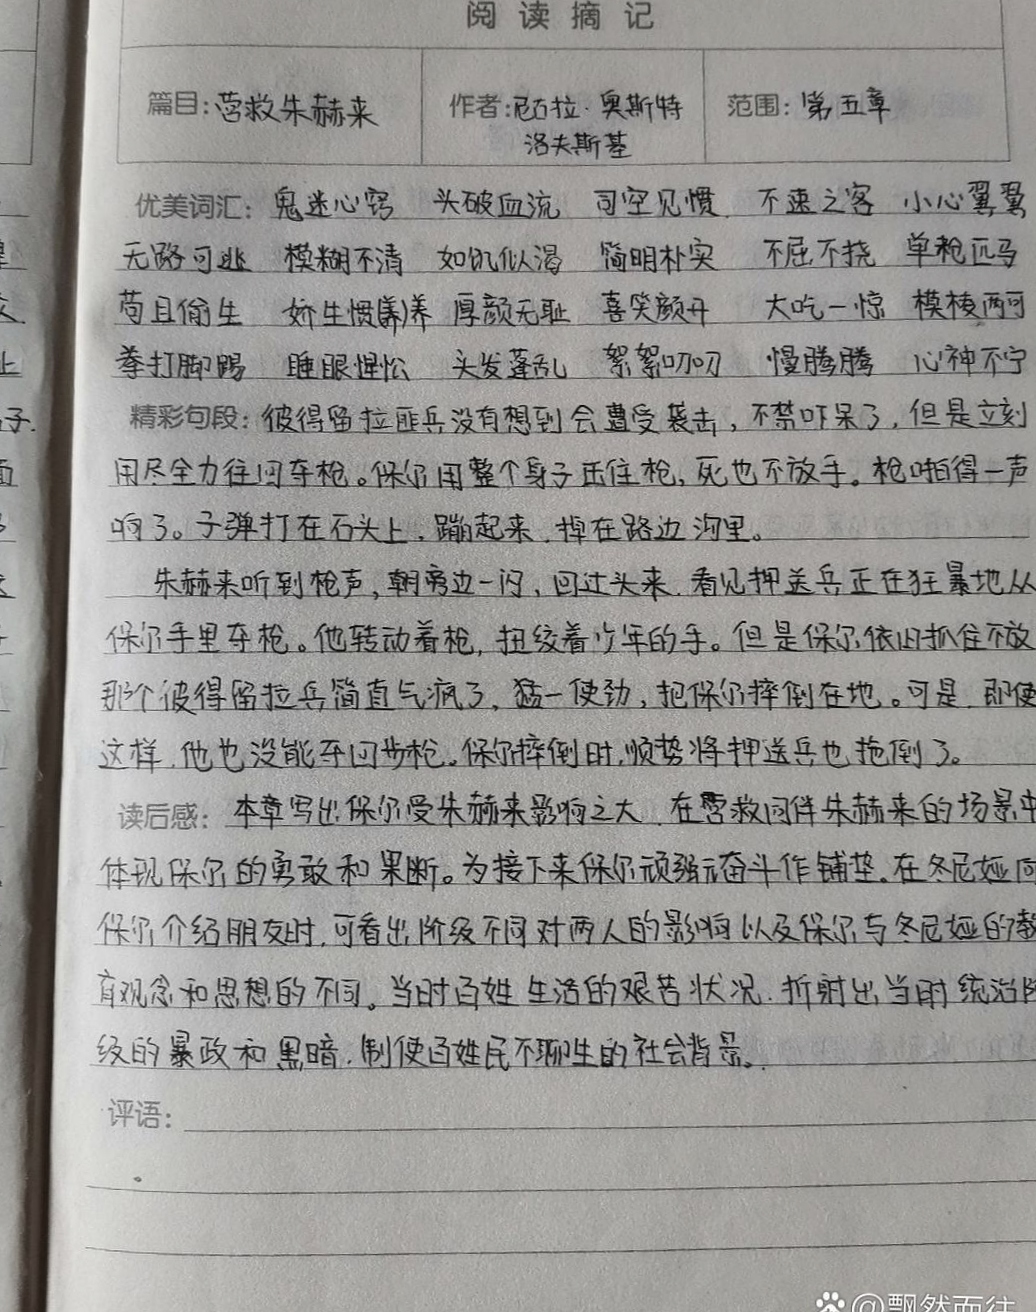 阅读摘记
篇目:营救朱赫来 作者:尼古拉·奥斯特洛夫斯基 范围:第五章
优美词汇: 鬼迷心窍 头破血流 司空见惯 不速之客 小心翼翼
无路可逃 模糊不清 如饥似渴 简明朴实 不屈不挠 单枪匹马
苟且偷生 娇生惯养 厚颜无耻 喜笑颜开 大吃一惊 模棱两可
拳打脚踢 睡眼惺忪 头发蓬乱 絮絮叨叨 慢腾腾 心神不宁
精彩句段:彼得留拉匪兵没有想到会遭受袭击,不禁吓呆了,但是立刻
用尽全力往回夺枪。保尔用整个身子压住枪,死也不放手。枪啪得一声
响了。子弹打在石头上,蹦起来,掉在路边沟里。
朱赫来听到枪声,朝旁边一闪,回过头来,看见押送兵正在狂暴地从
保尔手里夺枪。他转动着枪,扭绞着少年的手。但是保尔依旧抓住不放
那个彼得留拉兵简直气疯了,猛一使劲,把保尔摔倒在地。可是,即使
这样,他也没能夺回步枪。保尔摔倒时,顺势将押送兵也拖倒了。
读后感: 本章写出保尔受朱赫来影响之大,在营救同伴朱赫来的场景中
体现保尔的勇敢和果断。为接下来保尔顽强奋斗作铺垫。在冬尼娅向
保尔介绍朋友时,可看出阶级不同对两人的影响以及保尔与冬尼娅的教
育观念和思想的不同。当时百姓生活的艰苦状况,折射出当时统治阶
级的暴政和黑暗,制使百姓民不聊生的社会背景。
评语:
@飘然而往